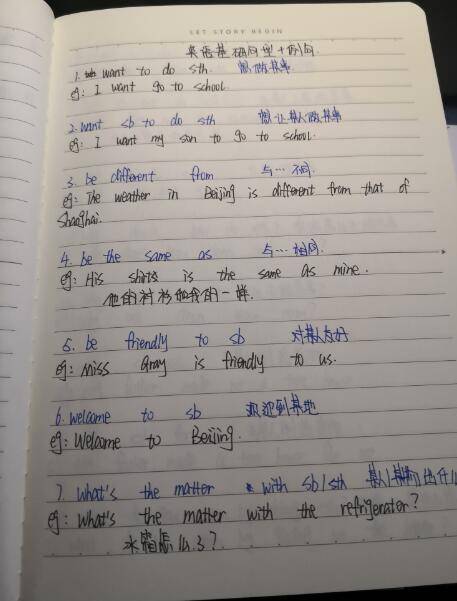 LET STORY BEGIN
英语基础句型+例句
1. want to do sth. 想做某事
eg: I want go to school.
2. want sb to do sth 想让某人做某事
eg: I want my son to go to school.
3. be different from 与…不同.
eg: The weather in Beijing is different from that of
Shanghai.
4. be the same as 与…相同.
eg: His shirt is the same as mine.
他的衬衫和我的一样.
5. be friendly to sb 对某人友好
eg: Miss Gray is friendly to us.
6. welcome to sb 欢迎到某地
eg: Welcome to Beijing.
7. What's the matter with sb/sth 某人/某物
eg: What's the matter with the refrigerator?
冰箱怎么了?